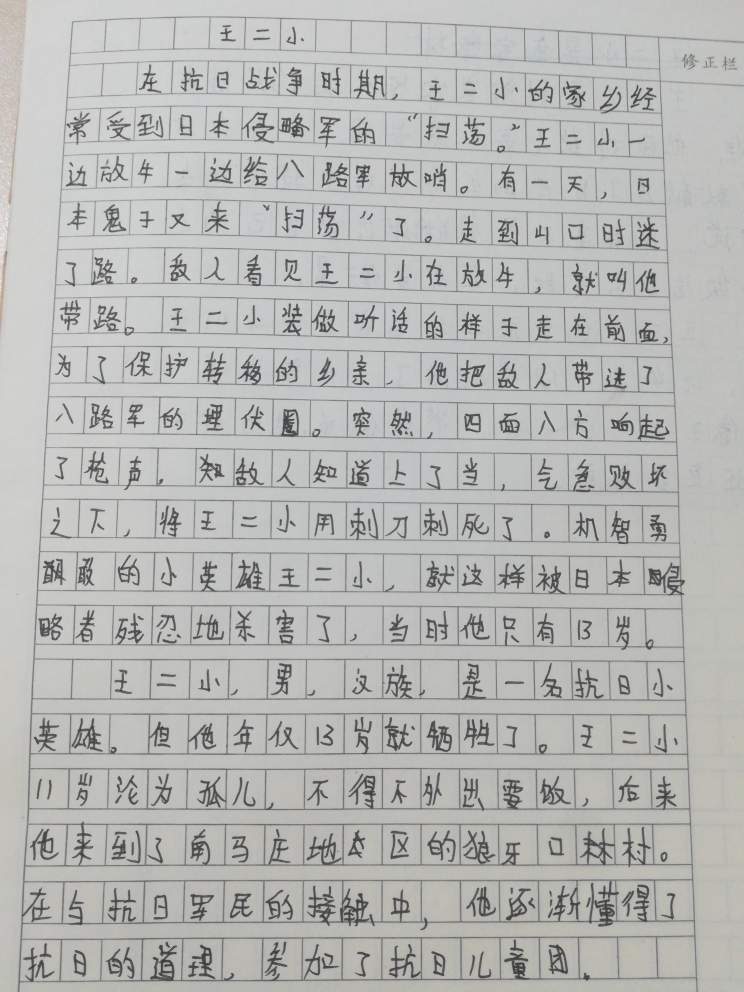 王二小
修正栏
在抗日战争时期，王二小的家乡经
常受到日本侵略军的“扫荡。”王二小一
边放牛一边给八路军放哨。有一天，日
本鬼子又来“扫荡”了。走到山口时迷
了路。敌人看见王二小在放牛，就叫他
带路。王二小装做听话的样子走在前面，
为了保护转移的乡亲，他把敌人带进了
八路军的埋伏圈。突然，四面八方响起
了枪声，知敌人知道上了当，气急败坏
之下，将王二小用刺刀刺死了。机智勇
敢的小英雄王二小，就这样被日本侵
略者残忍地杀害了，当时他只有13岁。
王二小，男，汉族，是一名抗日小
英雄。但他年仅13岁就牺牲了。王二小
11岁沦为孤儿，不得不外出要饭，后来
他来到了南马庄地区的狼牙口村。
在与抗日军民的接触中，他逐渐懂得了
抗日的道理，参加了抗日儿童团。